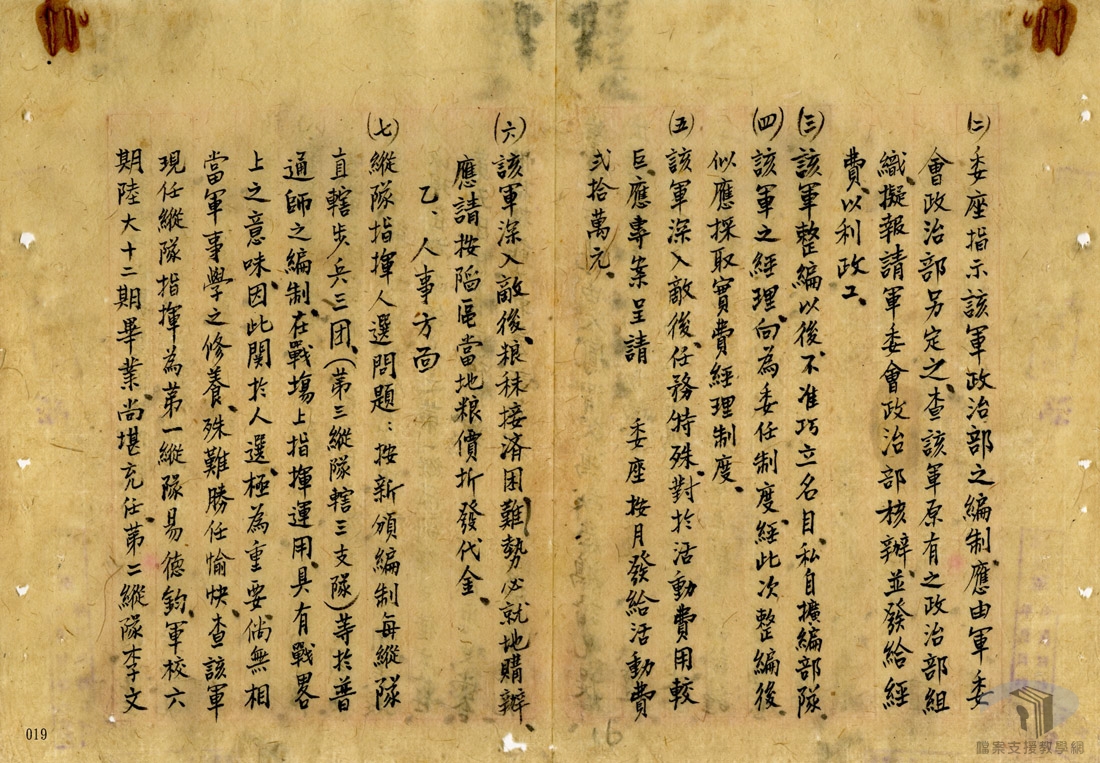 (二)委座指示該軍政治部之編制、應由軍委
會政治部另定之、查該軍原有之政治部組
織、擬報請軍委會政治部核辦、並發給經
費、以利政工、
(三)該軍整編以後、不准巧立名目、私自擴編部隊、
(四)該軍之經理、向為委任制度、經此次整編後、
似應採取實費經理制度、
(五)該軍深入敵後、任務特殊、對於活動費用較
巨、應專案呈請 委座按月發給活動費
弍拾萬元、
(六)該軍深入敵後、粮秣接済困難、勢必就地購辦、
應請按陷區當地粮價折發代金、
乙、人事方面
(七)縱隊指揮人選問題：按新頒編制每縱隊
直轄步兵三团、(第三縱隊轄三支隊)等於普
通師之編制、在戰場上指揮運用、具有戰畧
上之意味、因此関於人選、極為重要、倘無相
當軍事學之修養、殊難勝任愉快、查該軍
現任縱隊指揮為第一縱隊易德鈞、軍校六
期陸大十二期畢業、尚堪充任、第二縱隊李文
019
16
檔案支援教學網